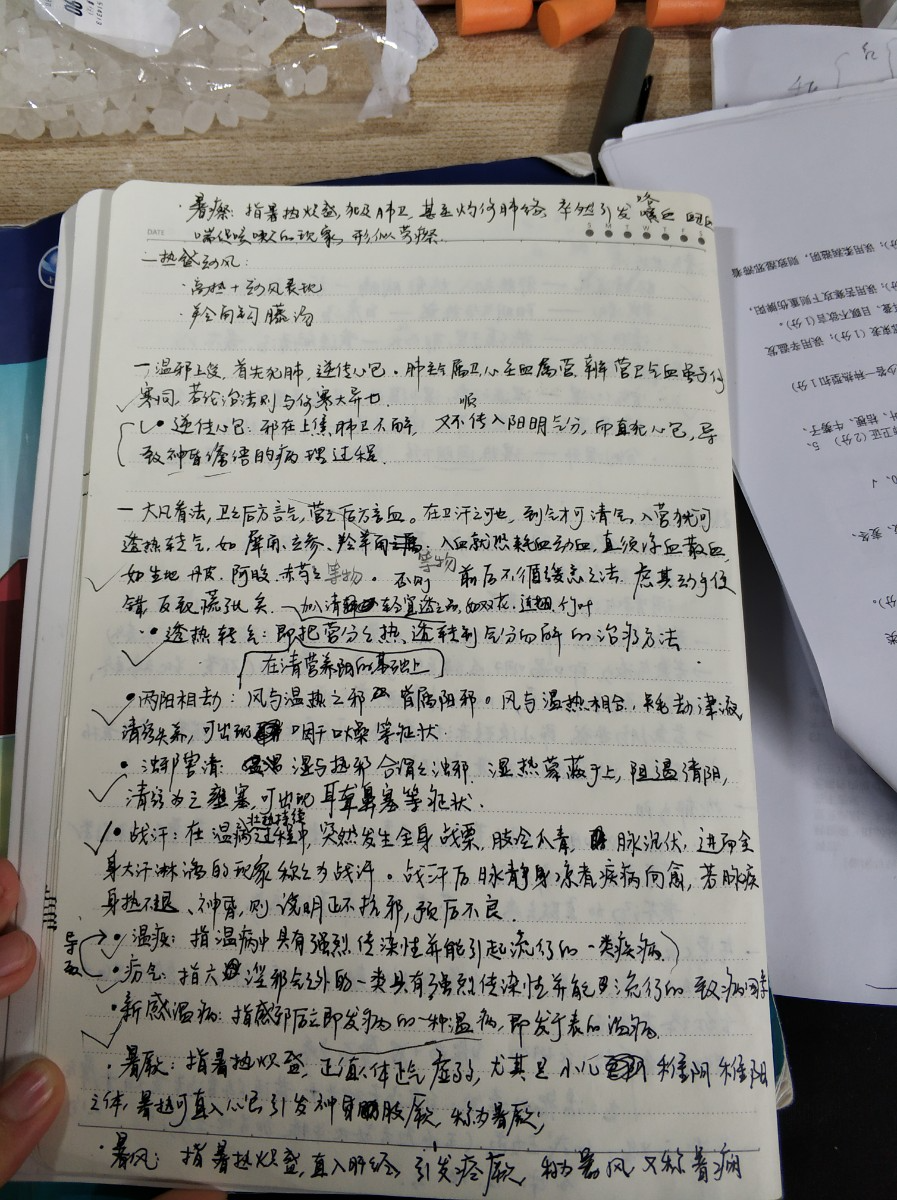 ·暑瘵:指暑热炽盛,犯及肺卫,甚至灼伤肺络,卒然引发咯血
DATE S M T W T F S
喘促咳嗽的现象,形似劳瘵.
一热盛动风:
·高热+动风表现
·羚角钩藤汤
一温邪上受,首先犯肺,逆传心包。肺主气属卫,心主血属营,辨营卫气血虽与伤
寒同,若论治法则与伤寒大异也. 顺
·逆传心包:邪在上焦肺卫不解,又不传入阳明气分,而直犯心包,导
致神昏谵语的病理过程.
一大凡看法,卫之后方言气,营之后方言血。在卫汗之可也,到气才可清气,入营犹可
透热转气,如犀角、玄参、羚羊角等物,入血就恐耗血动血,直须凉血散血,
如生地、丹皮、阿胶、赤芍之等物。否则前后不循缓急之法,虑其动手便
错,反致慌张矣. 加清轻宣透之品,如双花、连翘、竹叶
·透热转气:即把营分之热,透转到气分而解的治疗方法
在清营养阴的基础上
·两阳相劫:风与温热之邪皆属阳邪。风与温热相合,耗劫津液,
清窍失养,可出现口干口燥等症状.
·浊邪害清:湿与热邪合谓之浊邪.湿热蒙蔽于上,阻遏清阳,
清窍为之壅塞,可出现耳聋鼻塞等症状.
·战汗:在温病过程中,突然发生全身战栗,肢冷爪青,脉沉伏,进而全
身大汗淋漓的现象称之为战汗。战汗后脉静身凉者疾病向愈,若脉疾
身热不退、神昏,则说明正不抗邪,预后不良.
导致
·温疫:指温病中具有强烈传染性并能引起流行的一类疾病.
·疠气:指六淫邪气之外的一类具有强烈传染性并能流行的致病因素
·新感温病:指感邪后立即发病的一种温病,即发于表的温病.
·暑厥:指暑热炽盛,正值人体正气虚弱,尤其是小儿稚阴稚阳
之体,暑热可直入心包引发神昏肢厥,称为暑厥;
·暑风:指暑热炽盛,直入肝经,引发痉厥,称为暑风,又称暑痫